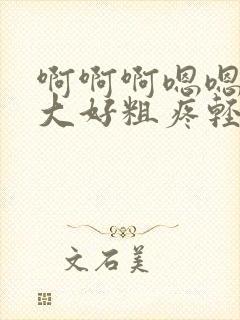 啊啊啊嗯嗯
大好粗疼轻
文石美